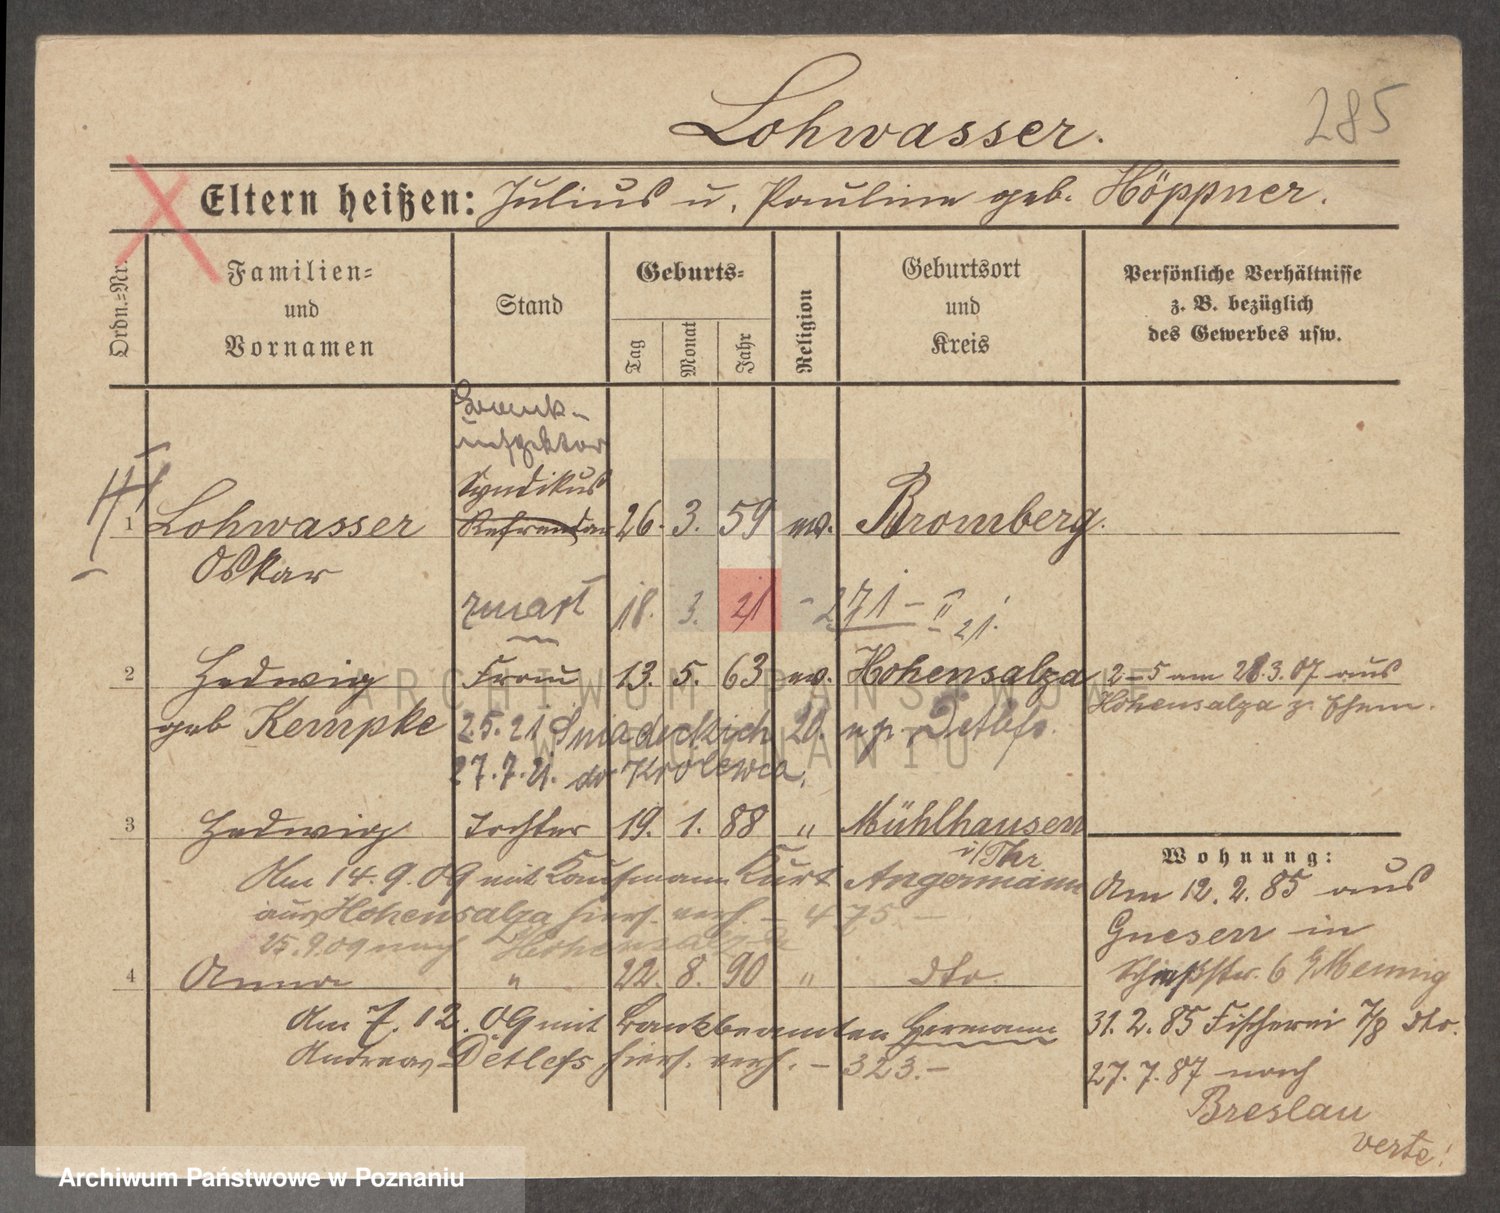 285
Lohwasser.
Eltern heißen: Julius u. Pauline geb. Höppner.
Ordn.-Nr.
Familien-
und
Vornamen
Stand
Geburts-
Tag
Monat
Jahr
Religion
Geburtsort
und
Kreis
Persönliche Verhältnisse
z. B. bezüglich
des Gewerbes usw.
Bank-
inspektor
Syndikus
1 Lohwasser Referendar 26. 3. 59 ev. Bromberg.
Oskar
zmarł 18. 3. 21 - 271 - II 21.
2 Hedwig Frau 13. 5. 63 ev. Hohensalza 2-5 am 28.3.07 aus
geb Kempke Hohensalza z. Ehem.
25.5.21 Śniadeckich 20. Detlefs.
27.7.21. do Królewca.
3 Hedwig Tochter 19. 1. 88 " Mühlhausen
i/Thr
Am 14.9.09 mit Kaufmann Kurt Angermann
aus Hohensalza hiers. verh. - 475 -
25.9.09 nach Hohensalza
4 Anna " 22. 8. 90 " dto.
Am 7.12.09 mit Bankbeamten Hermann
Andreas Detlefs hiers. verh. - 323. -
Wohnung:
Am 12.2.85 aus
Gnesen in
Schießstr. 6 b/Mennig
31.2.85 Fischerei 7/8 dto.
27.7.87 nach
Breslau
verte!
ARCHIWUM PAŃSTWOWE
W POZNANIU
Archiwum Państwowe w Poznaniu